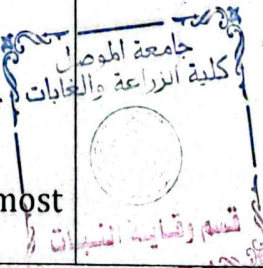 جامعة الموصل
كلية الزراعة والغابات
most
قسم وقاية النبات